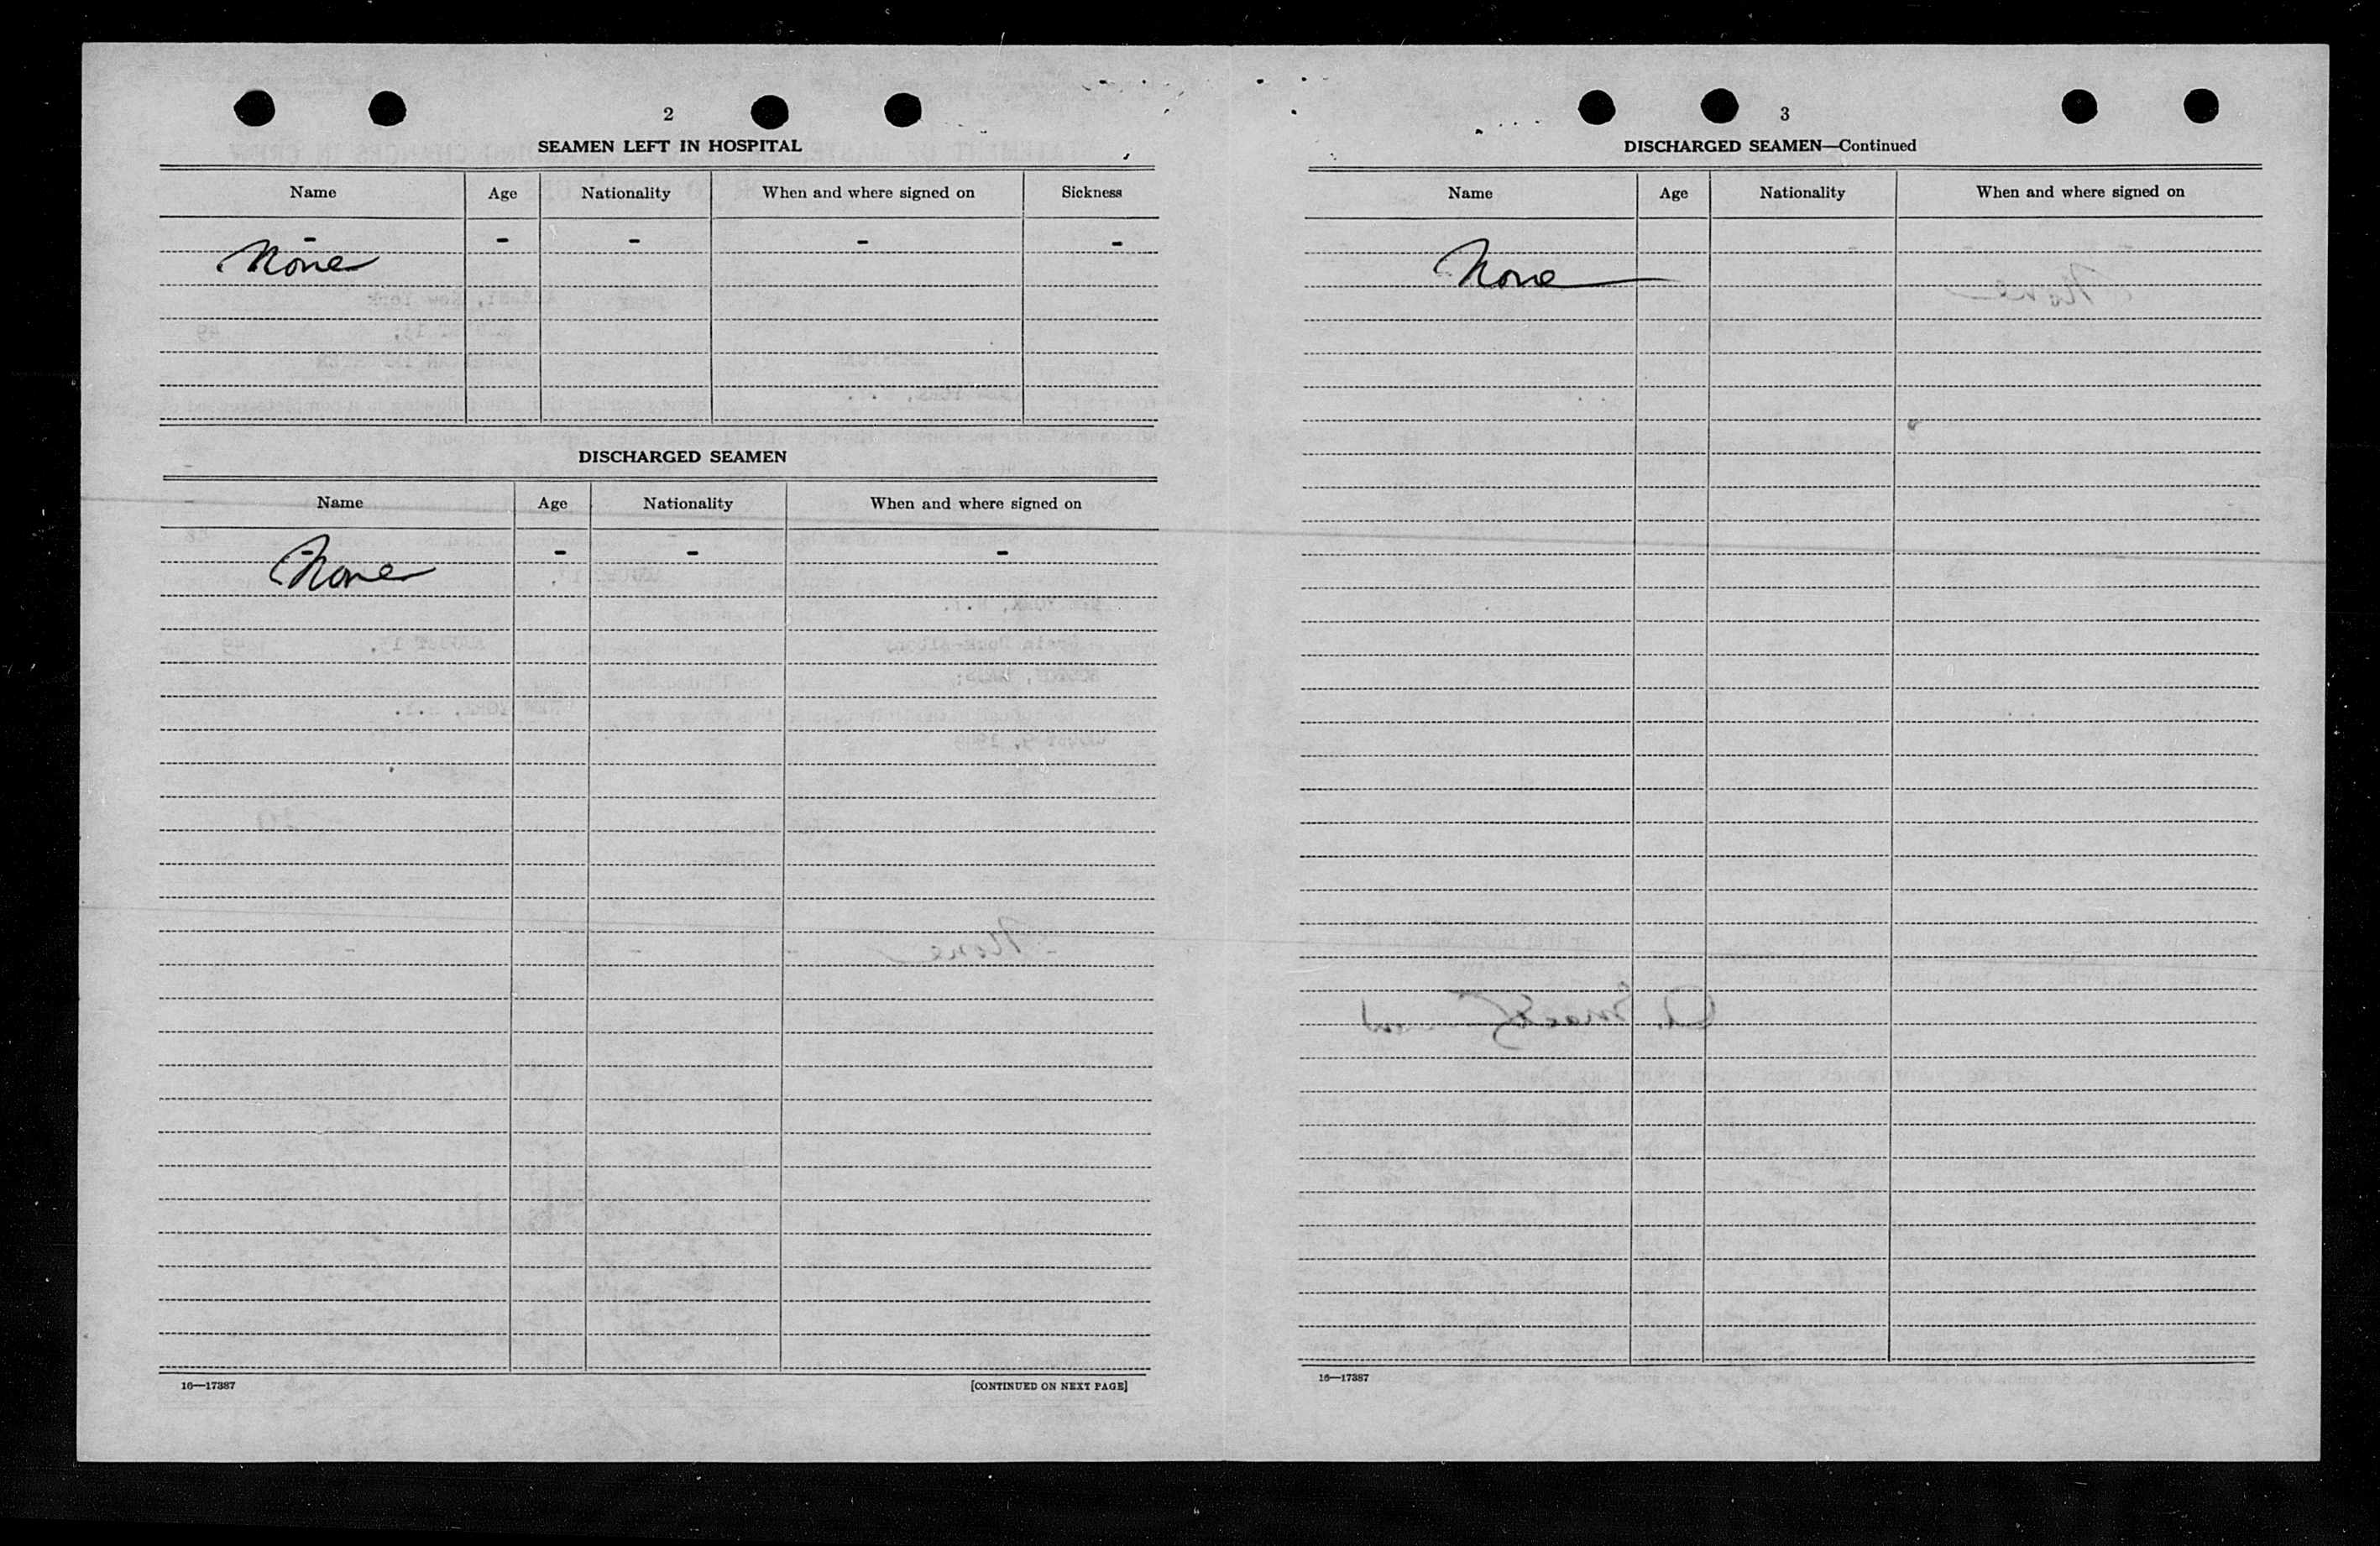 2
SEAMEN LEFT IN HOSPITAL
Name Age Nationality When and where signed on Sickness
- - - - -
None
DISCHARGED SEAMEN
Name Age Nationality When and where signed on
- - - -
None
16—17387 [CONTINUED ON NEXT PAGE]
3
DISCHARGED SEAMEN—Continued
Name Age Nationality When and where signed on
None
16—17387